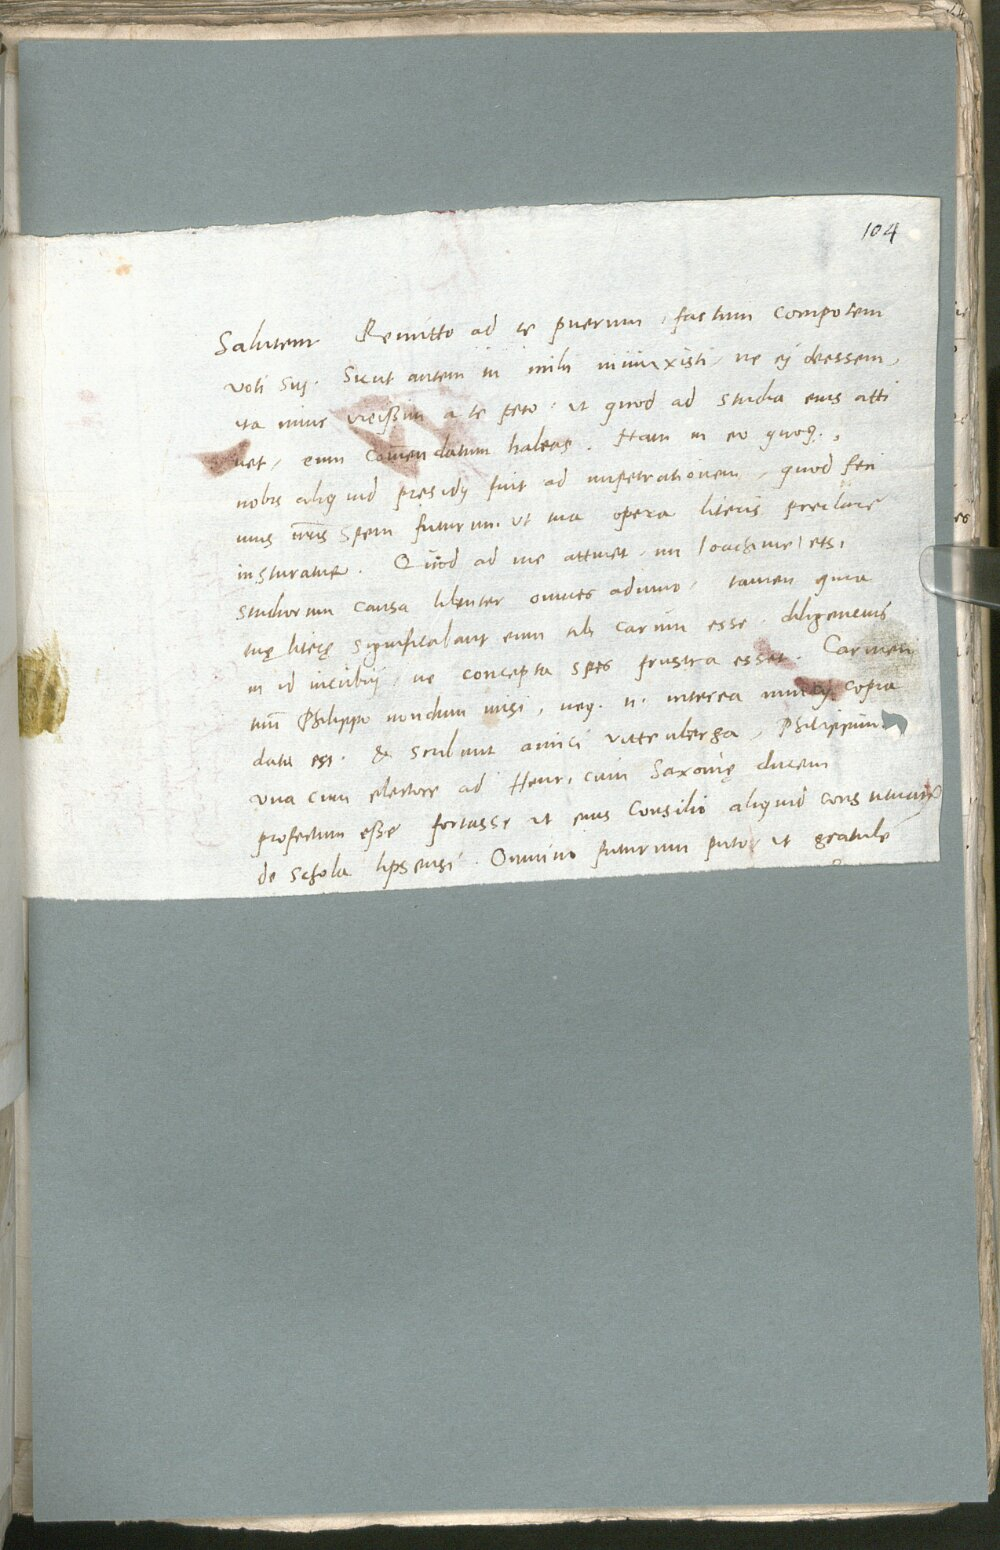 104
Salutem Remitto ad te puerum, factum compotem
voti sui. Sicut autem tu mihi iniunxisti ne ej deessem,
ita nunc vicißim a te peto ut quod ad studia eius atti
net, eum comendatum habeas. Nam in eo quoq.,
nobis aliquid presidij fuit ad impetrationem, quod feci
mus spem futurum ut tua opera literis preclare
insturatur. Quod ad me attinet mi Ioachime, etsi
studiorum causa libenter omnes adiuvo, tamen quia
tuę literę significabant eum tibi carum esse, diligentius
in id incubui, ne concepta spes frustra esset. Carmen
tuū Philippo nondum misi, neq. n. interea copia
data est. & scribunt amici Vittenberga, Philippum
vna cum electore ad Henricum Saxonię ducem
profectum eße fortasse ut eius consilio aliquid constituatur
de schola lipsensi. Omnino futurum puto ut